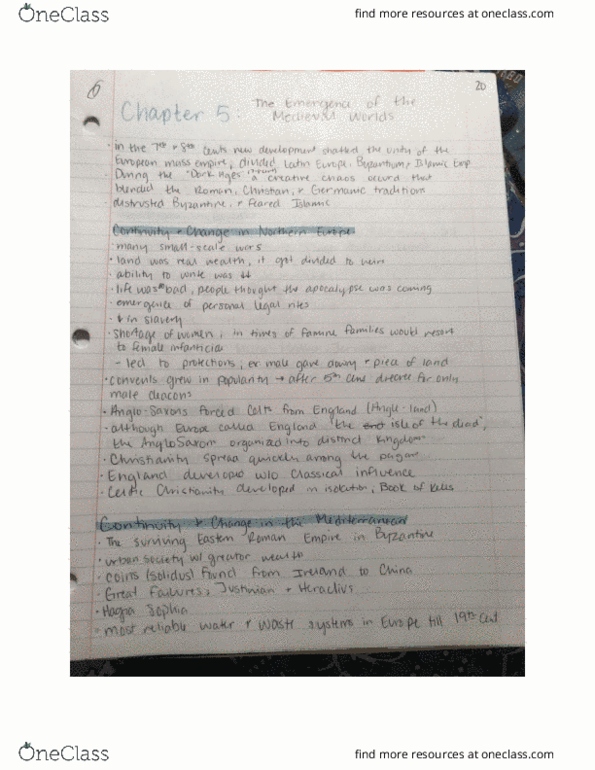 OneClass
find more resources at oneclass.com
20
Chapter 5: The Emergence of the
Medieval Worlds
· in the 7th + 8th cents new development shatted the unity of the
European mass empire, divided Latin Europe, Byzantium, Islamic Emp
· During the "Dark Ages" a creative chaos occurd that
blended the Roman, Christian, + Germanic traditions
· distrusted Byzantine, + feared Islamic
Continuity + Change in Northern Europe
· many small-scale wars
· land was real wealth, it got divided to heirs
· ability to write was
· life was bad, people thought the apocalypse was coming
· emergence of personal legal rites
· in slavery
· shortage of women, in times of famine families would resort
to female infanticide
- led to protections, ex male gave dowry + piece of land
· convents grew in popularity → after 5th cent for only
male deacons
· Anglo-Saxons forced Celts from England (Angle-land)
· although Europe called England "the isle of the dead",
the Anglo Saxon organized into distinct kingdom
· Christianity spread quickly among the
· England developed w/o Classical influence
· Celtic Christianity developed in isolation, Book of Kells
Continuity + Change in the Mediterranean
· The surviving Eastern Roman Empire in Byzantine
· urban society w/ greater wealth
· coins (solidus) found from Ireland to China
· Great Failures, Justinian + Heraclius
· Hagia Sophia
· most reliable water + waste systems in Europe till 19th cent
OneClass
find more resources at oneclass.com